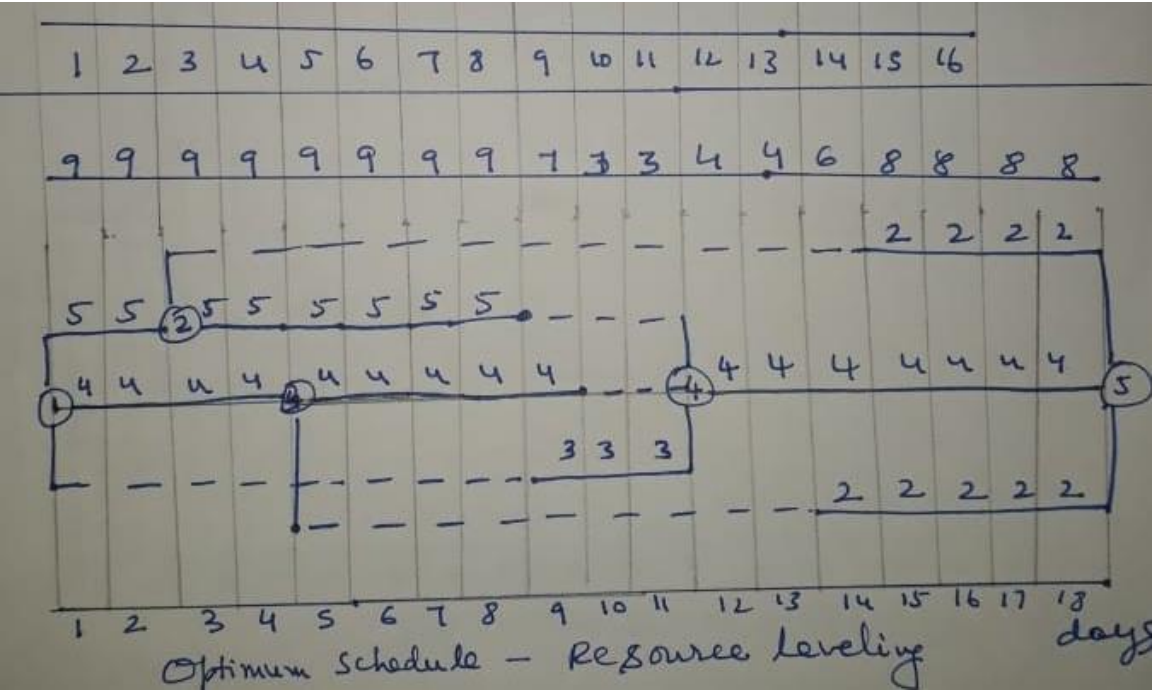 1 2 3 4 5 6 7 8 9 10 11 12 13 14 15 16
9 9 9 9 9 9 9 9 7 3 3 4 4 6 8 8 8 8
2 2 2 2
5 5 2 5 5 5 5 5 5
1 4 4 4 4 3 4 4 4 4 4 4 4 4 4 4 4 4 4 5
3 3 3
2 2 2 2 2
1 2 3 4 5 6 7 8 9 10 11 12 13 14 15 16 17 18
days
Optimum schedule - Resource leveling